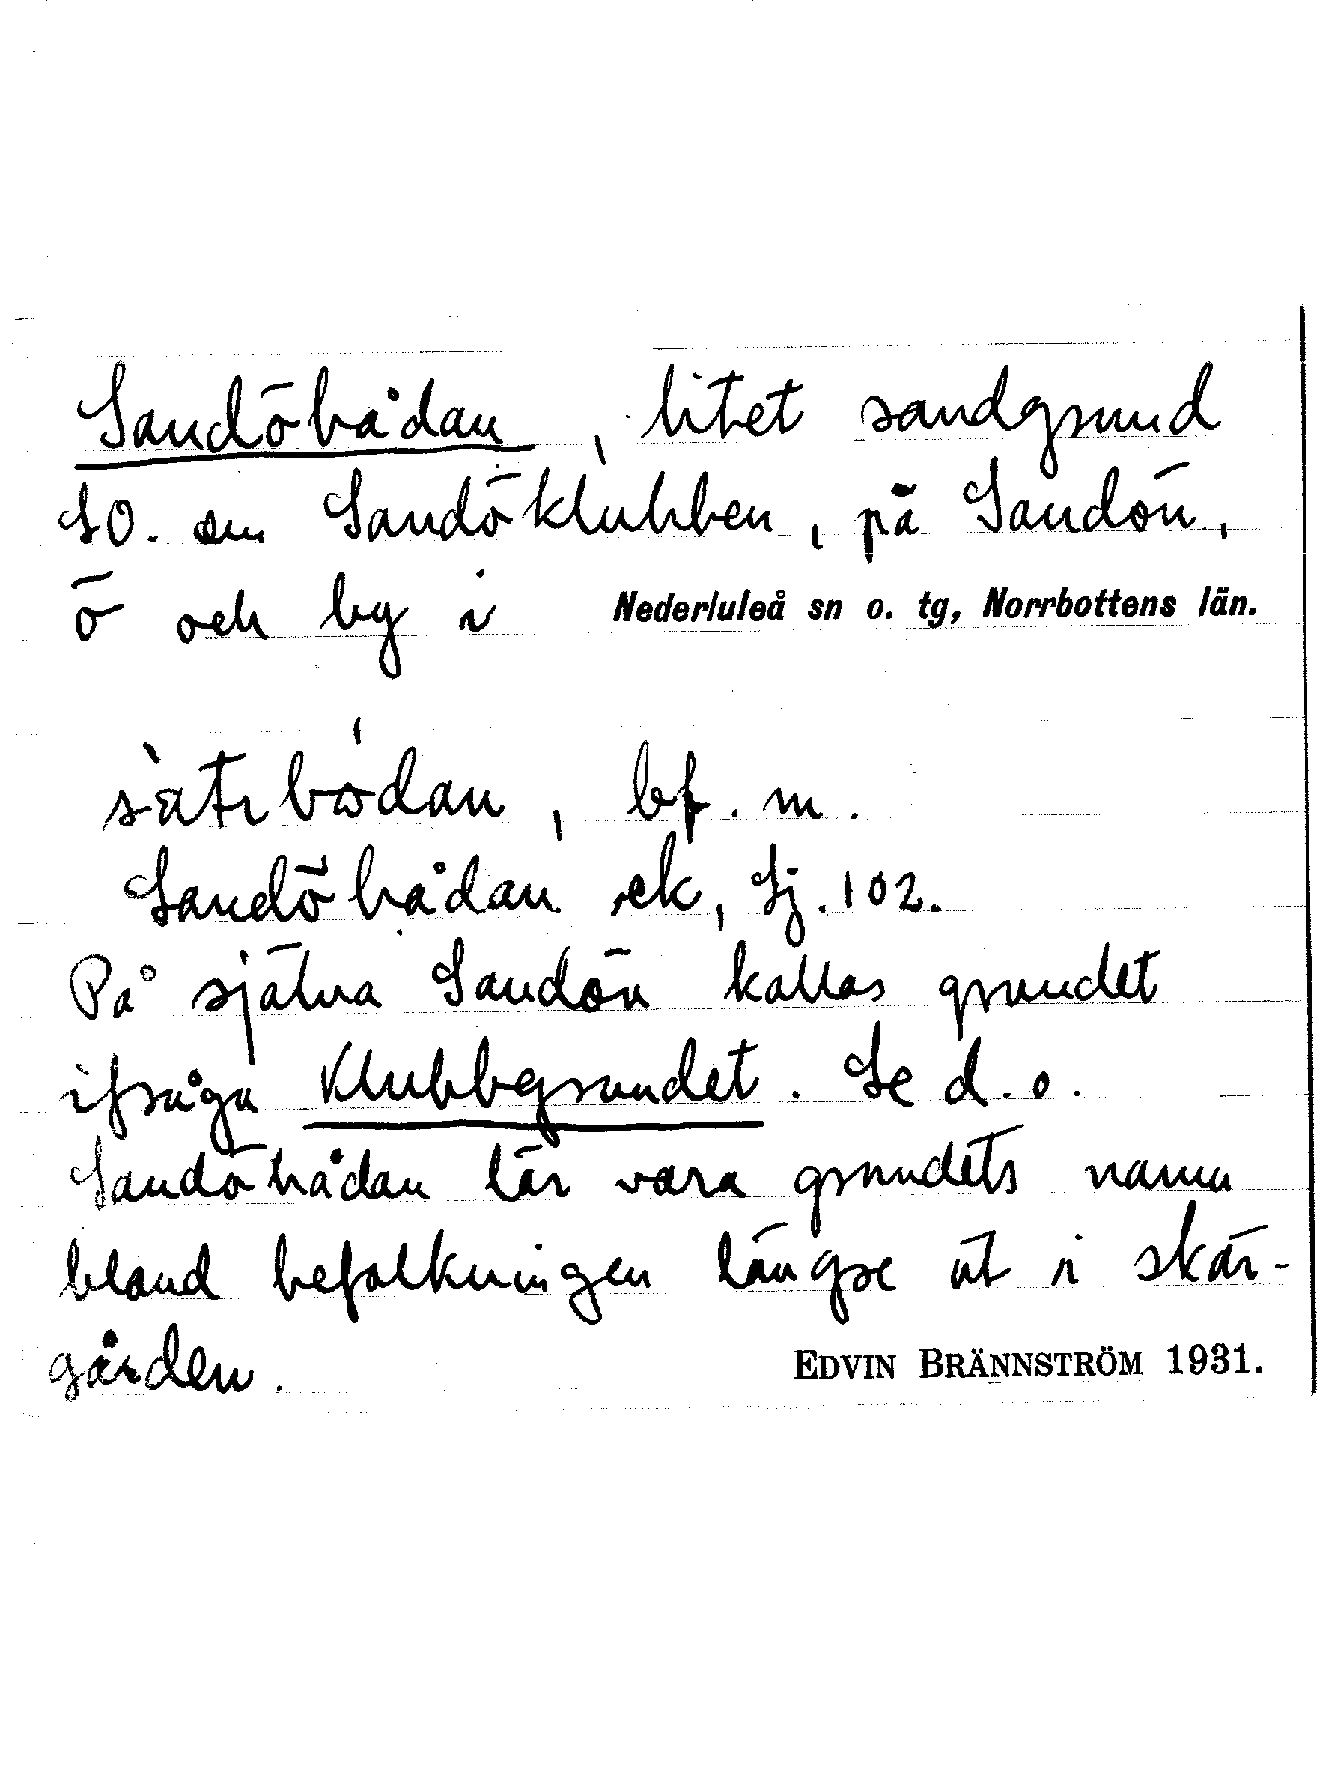 Sandöbådan, litet sandgrund
SO. om Sandöklubben, på Sandön,
ö och by i Nederluleå sn o. tg, Norrbottens län.
bf. m.
Sandöbådan ek, Sj. 102.
På själva Sandön kallas grundet
ifråga Klubbgrundet. Se d. o.
Sandöbådan lär vara grundets namn
bland befolkningen längse ut i skär-
gården.
EDVIN BRÄNNSTRÖM 1931.